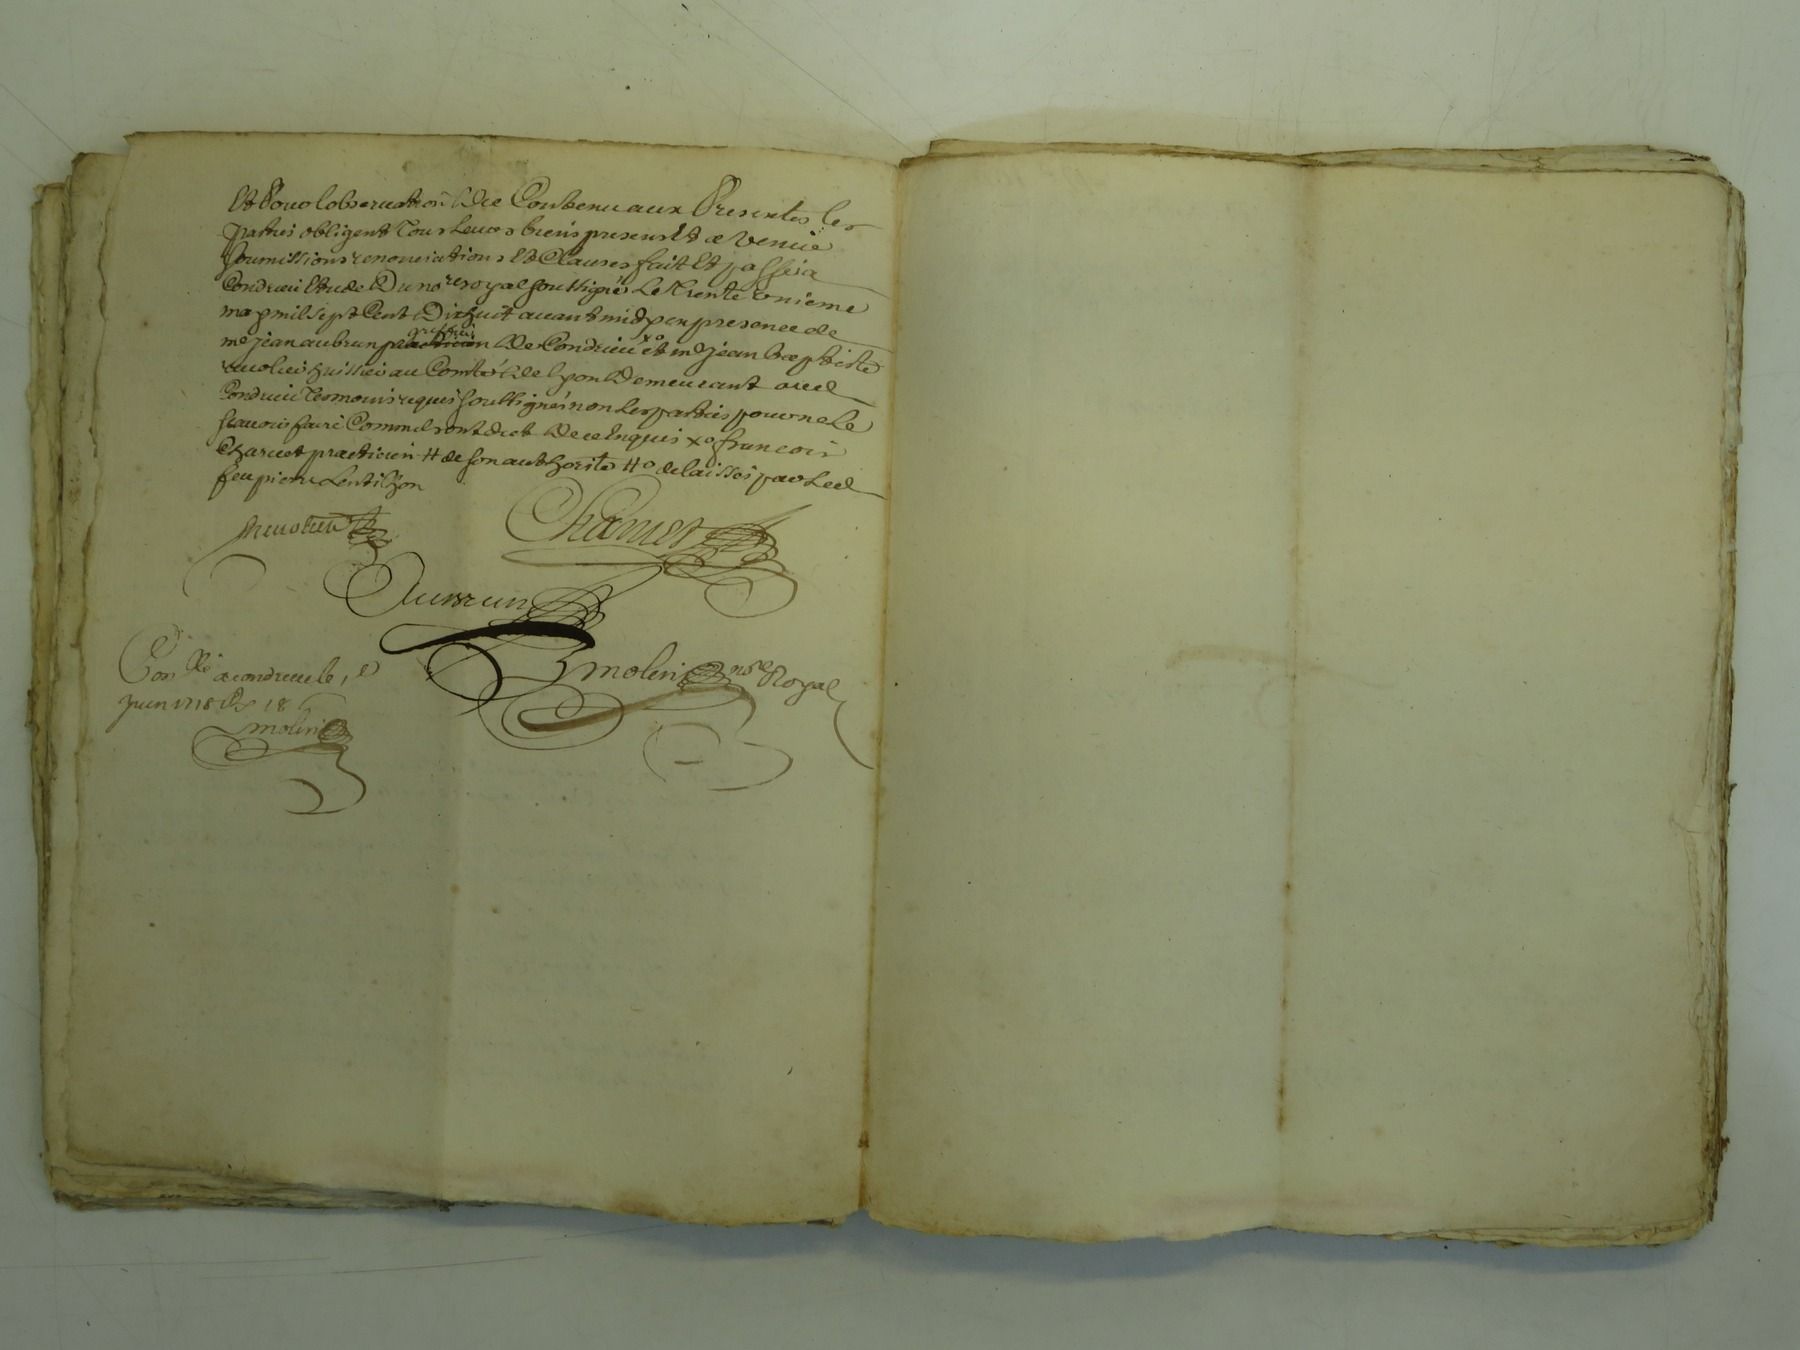 Et Pour lobservation De Contenu aux Presentes les
parties obligent Tous Leurs biens presens Et a Venir
soumissions renonciations Et Clauses fait Et passé a
Condrieu Etude Du no.re royal soussigné Le Trente unieme
may mil sept Cent Dixhuit avant midy en presence de
me jean aubrun greffier De Condrieu xo et me jean baptiste
huissier au Comté De lyon Demeurant aud
Condrieu Temoins requis soussignés non Les parties pour ne Le
scavoir faire Comme ont dit De ce Enquis xo francois
Charvet practicien # de son authorité #o delaissés par Led
feu pierre Lentilhon
Charvet
Aubrun
molin nore Royal
Con.lé a condrieu le 1 er
juin 1718 Rx 18 s
molin